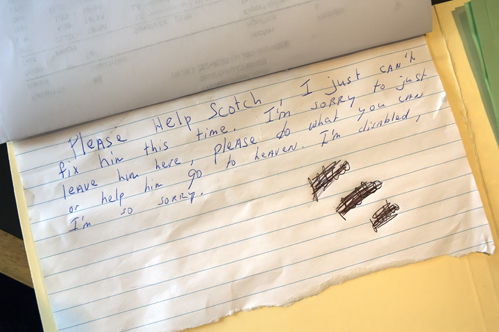 Please Help Scotch. I just can't
fix him this time. I'm sorry to just
leave him here, please do what you can
or help him go to heaven. I'm disabled,
I'm so sorry.